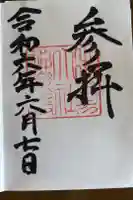 参拝
令和六年六月七日